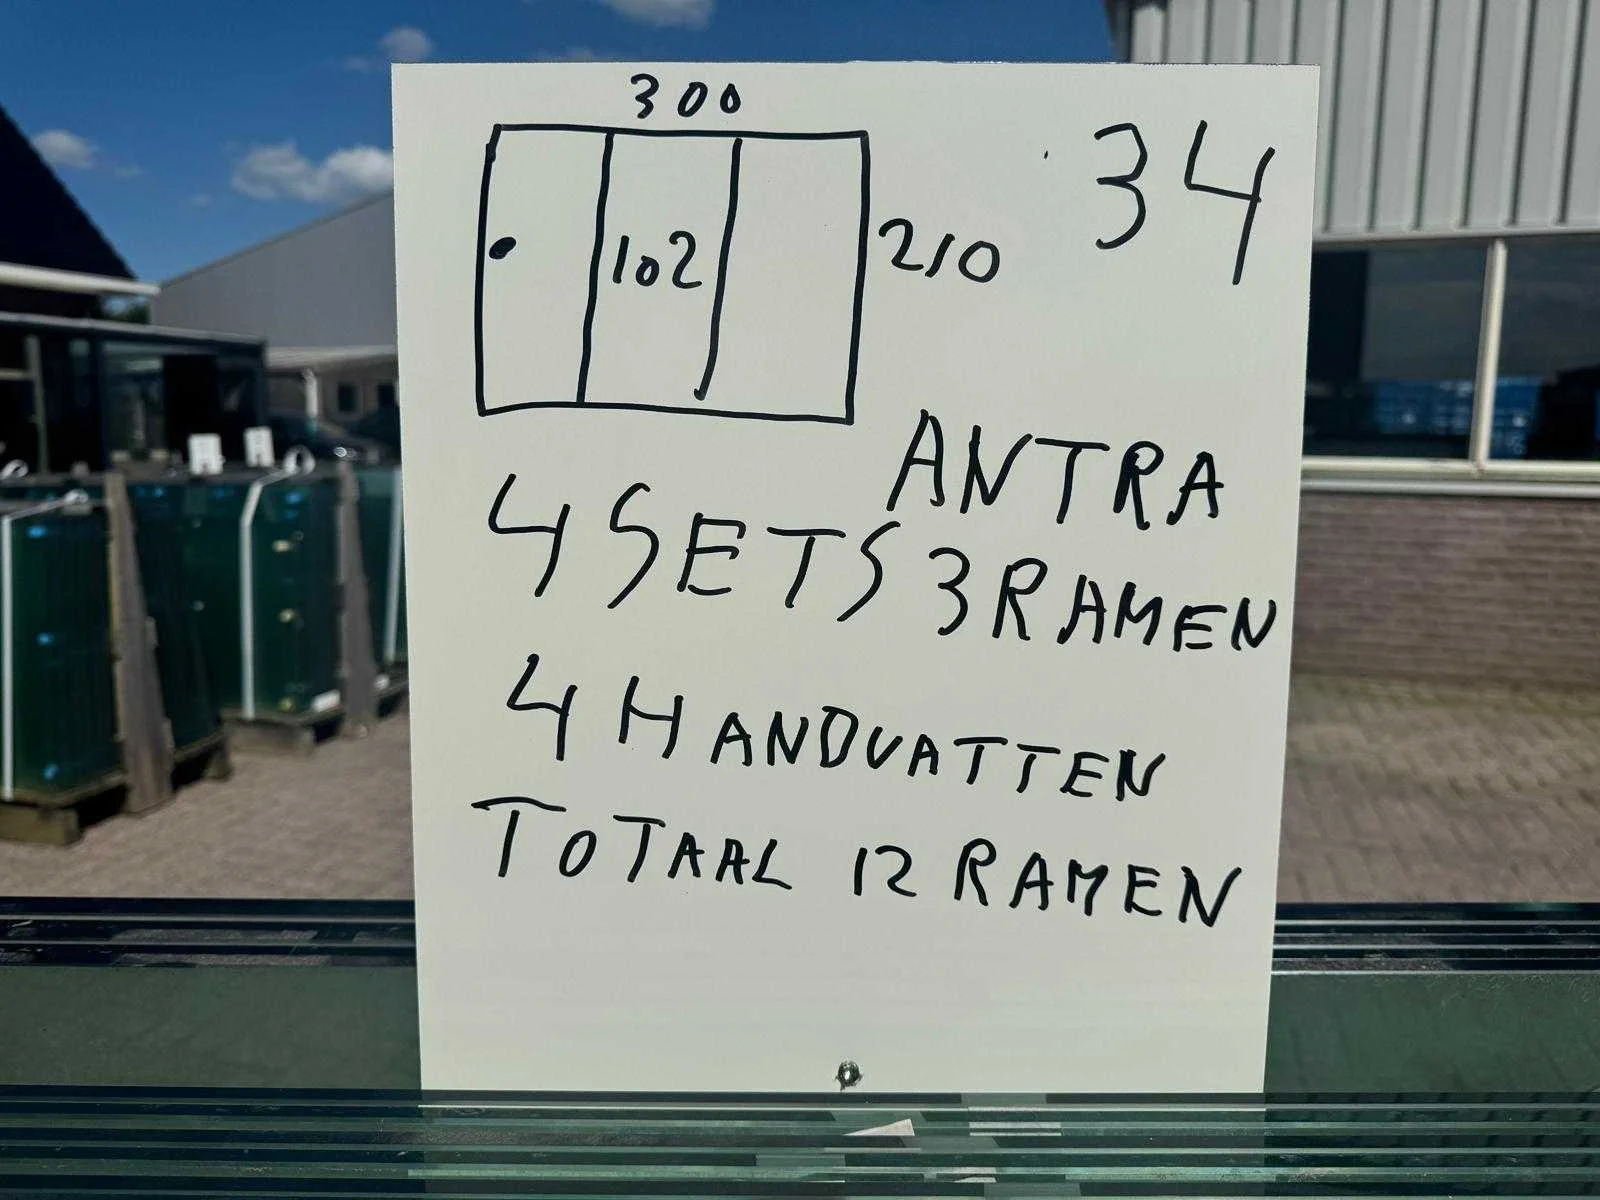 300
34
102
210
ANTRA
4 SETS 3 RAMEN
4 HANDVATTEN
TOTAAL 12 RAMEN